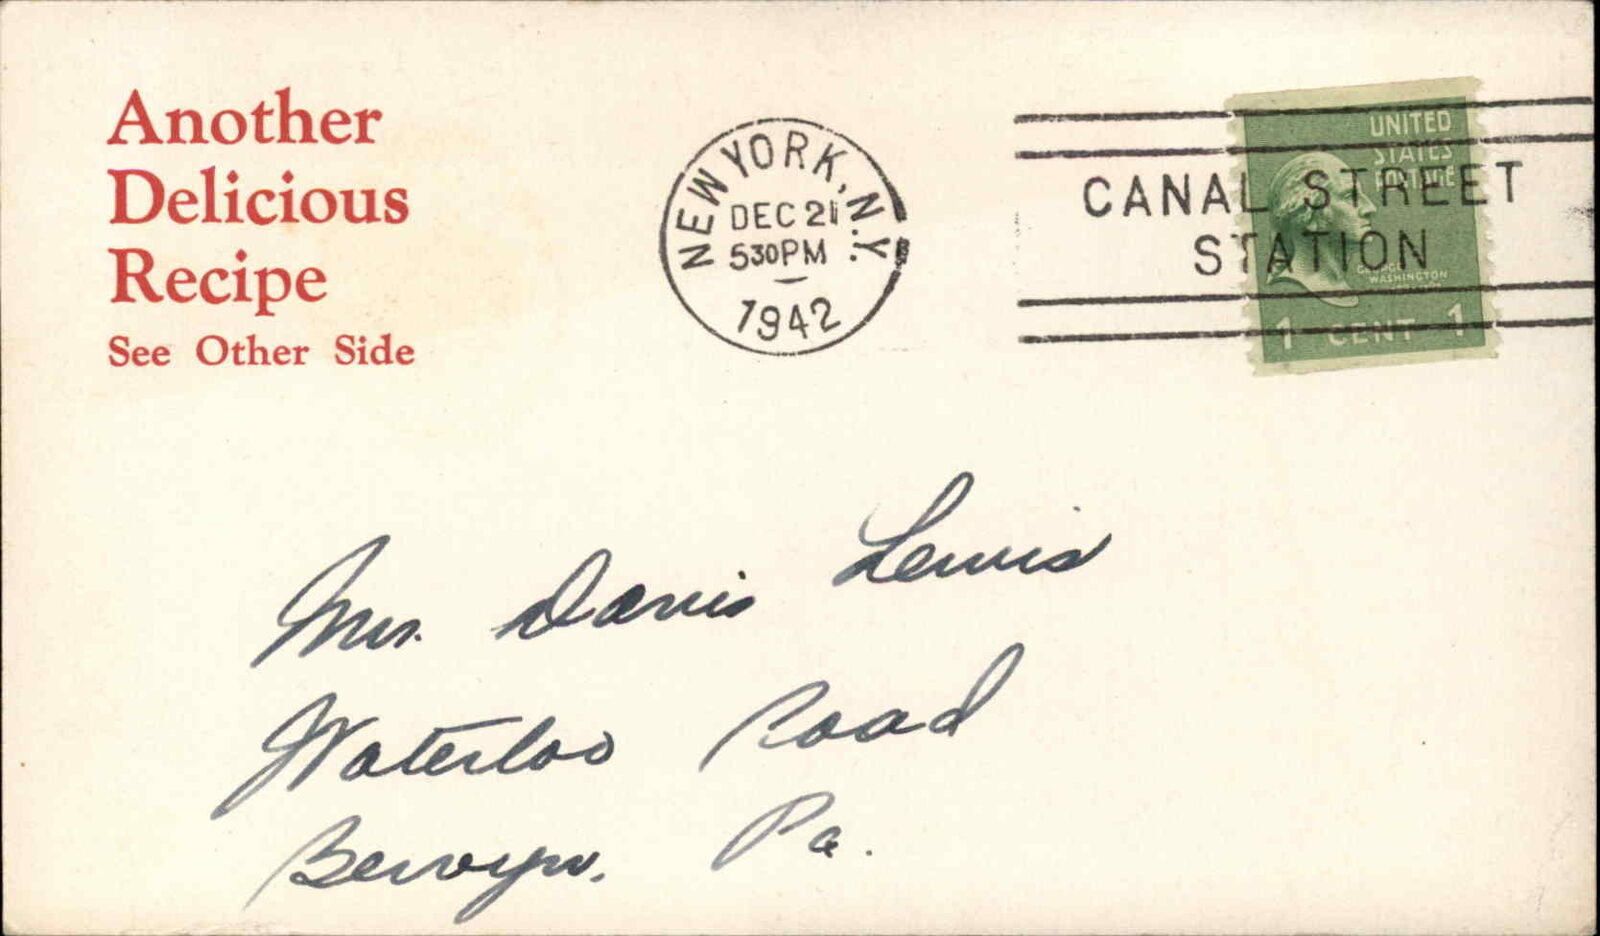 Another
Delicious
Recipe
See Other Side
NEW YORK, N.Y.
DEC 21
530PM
1942
CANAL STREET
STATION
UNITED
STATES
POSTAGE
GEORGE
WASHINGTON
1 CENT 1
Mrs. Davis Lewis
Waterloo Road
Berwyn. Pa.